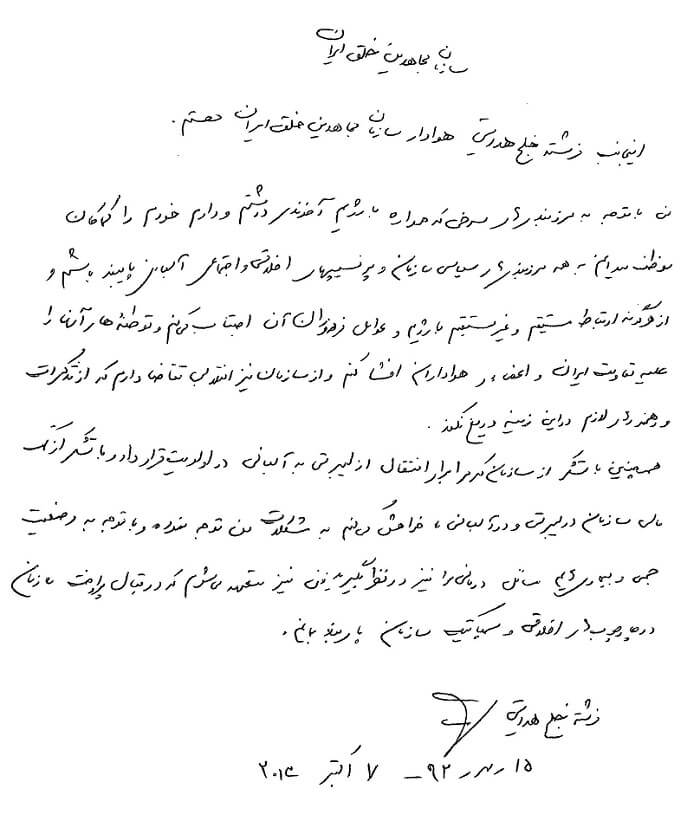 سازمان مجاهدین خلق ایران
اینجانب فرشته خلج هدایتی هوادار سازمان مجاهدین خلق ایران هستم.
من با توجه به مرزبندی‌های سرخی که همواره با رژیم آخوندی داشتم و دارم خودم را کماکان
موظف میدانم به همه مرزبندی‌های سیاسی سازمان و پرنسیپهای اخلاقی و اجتماعی آلبانی پایبند باشم و
از هرگونه ارتباط مستقیم و غیرمستقیم با رژیم و عوامل و مزدوران آن اجتناب کنم و توطئه‌های آنها را
علیه مقاومت ایران و اعضا و هواداران افشا کنم و از سازمان نیز انتقادی تقاضا دارم که از تذکرات
و رهنمودهای لازم در این زمینه دریغ نکند.
همچنین با تشکر از سازمان که مرا برای انتقال از لیبرتی به آلبانی در اولویت قرار داد و با تشکر از کمک
مالی سازمان در لیبرتی و در آلبانی، خواهش میکنم به مشکلات من توجه شده و با توجه به وضعیت
جسمی و بیماری‌هایم مسائل درمانی مرا نیز در نظر بگیرید. من نیز متعهد می‌شوم که در قبال پرداخت سازمان
در چارچوب‌های اخلاقی و سازمان پایبند بمانم.
فرشته خلج هدایتی
۱۵ مهر ۹۲ – ۷ اکتبر ۲۰۱۳